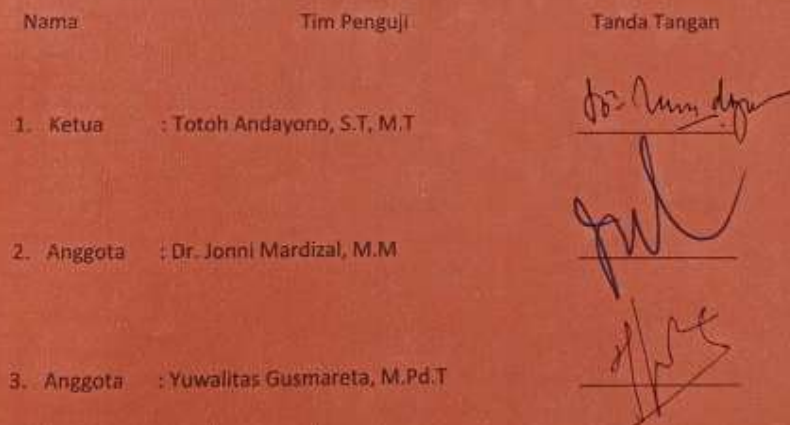 Nama Tim Penguji Tanda Tangan
1. Ketua : Totoh Andayono, S.T, M.T
2. Anggota : Dr. Jonni Mardizal, M.M
3. Anggota : Yuwalitas Gusmareta, M.Pd.T